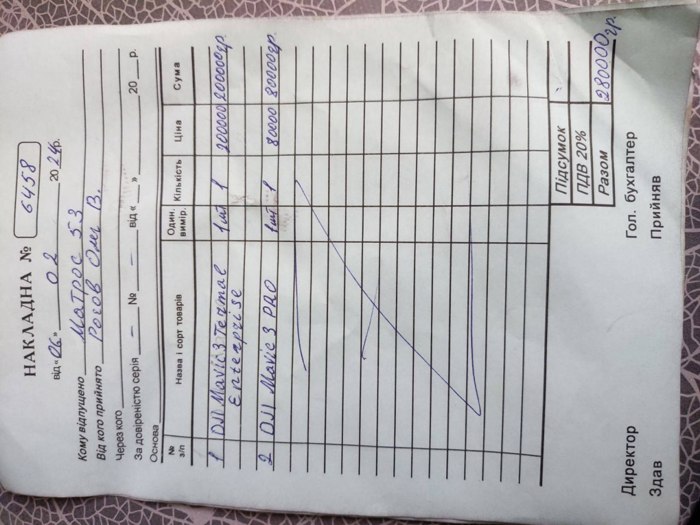 НАКЛАДНА № 6458
від «06» 02 2024р.
Кому відпущено Матрос 53
Від кого прийнято Рогов Олег В.
Через кого
За довіреністю серія — № — від « — » 20 р.
Основа
№ з/п Назва і сорт товарів Один. вимір. Кількість Ціна Сума
1 DJI Mavic 3 Termal 1шт 1 200000 200000гр.
Enterprise
2 DJI Mavic 3 PRO 1шт 1 80000 80000гр.
Підсумок
ПДВ 20%
Разом 280000гр.
Директор Гол. бухгалтер
Здав Прийняв